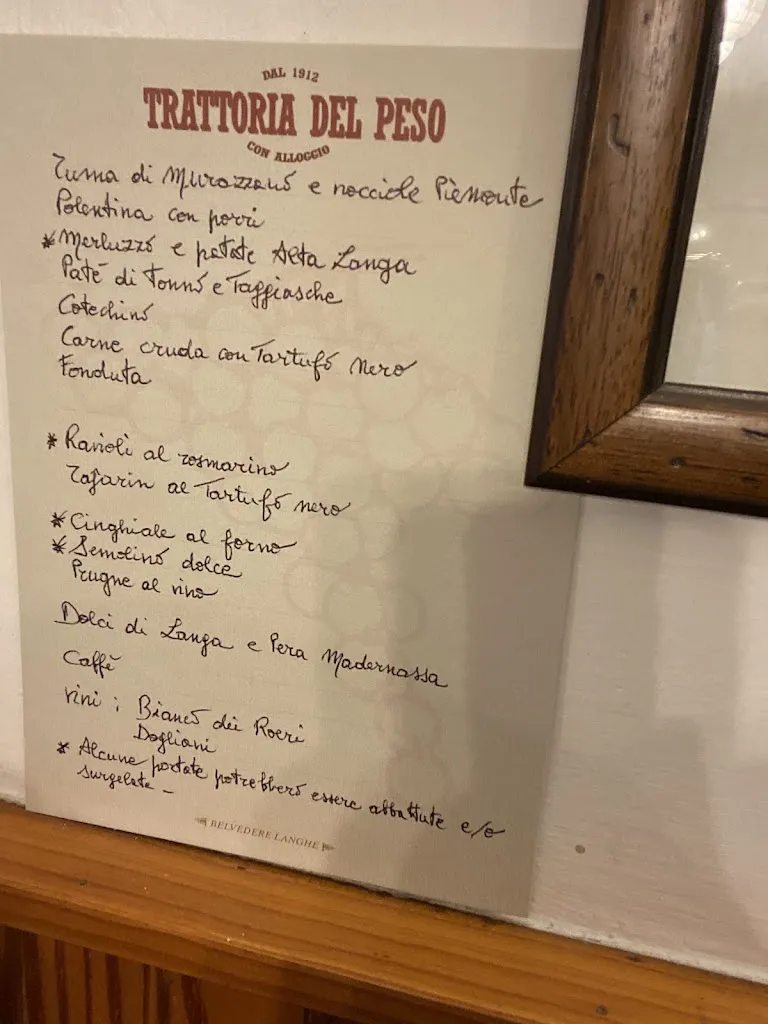 DAL 1912
TRATTORIA DEL PESO
CON ALLOGGIO
Tuma di Murazzano e nocciole Piemonte
Polentina con porri
* Merluzzo e patate Alta Langa
Patè di Tonno e Taggiasche
Cotechino
Carne cruda con Tartufo nero
Fonduta
* Ravioli al rosmarino
Tajarin al Tartufo nero
* Cinghiale al forno
* Semolino dolce
Prugne al vino
Dolci di Langa e Pera Madernassa
Caffè
vini : Bianco dei Roeri
Dogliani
* Alcune portate potrebbero essere abbattute e/o
surgelate -
BELVEDERE LANGHE